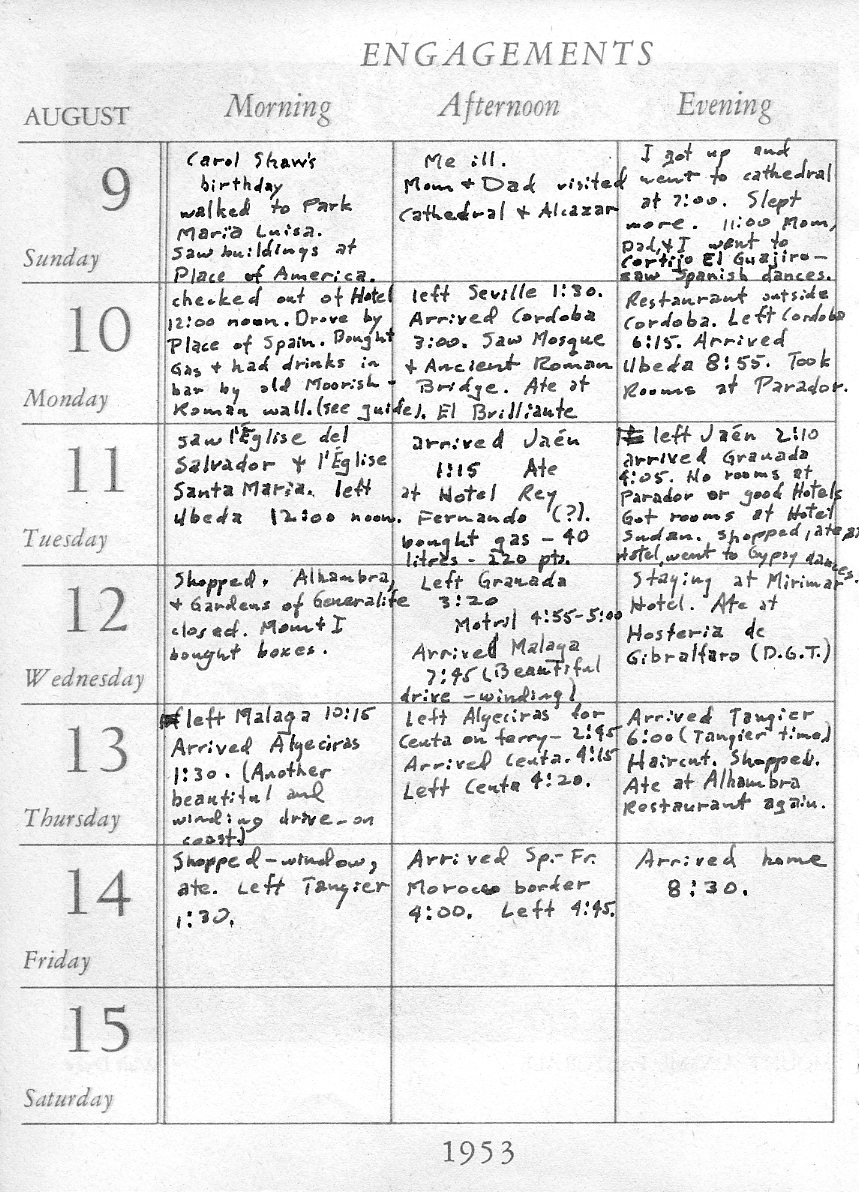 ENGAGEMENTS
AUGUST
Morning
Afternoon
Evening
9
Sunday
Carol Shaw's
birthday
walked to Park
Maria Luisa.
Saw buildings at
Place of America.
Me ill.
Mom + Dad visited
Cathedral + Alcazar
I got up and
went to cathedral
at 7:00. Slept
more. 11:00 Mom,
Dad, & I went to
Cortijo El Guajiro—
saw Spanish dances.
10
Monday
checked out of Hotel
12:00 noon. Drove by
Place of Spain. Bought
Gas + had drinks in
bar by old Moorish-
Roman wall. (see guide).
left Seville 1:30.
Arrived Cordoba
3:00. Saw Mosque
+ Ancient Roman
Bridge. Ate at
El Brilliante
Restaurant outside
Cordoba. Left Cordoba
6:15. Arrived
Ubeda 8:55. Took
Rooms at Parador.
11
Tuesday
Saw l'Église del
Salvador + l'Église
Santa Maria. left
Ubeda 12:00 noon.
arrived Jaén
1:15 Ate
at Hotel Rey
Fernando (?).
bought gas - 40
litres - 220 pts.
left Jaén 2:10
arrived Granada
4:05. No rooms at
Parador or good Hotels
Got rooms at Hotel
Sudan. shopped, ate at
Hotel, went to Gypsy dances.
12
Wednesday
Shopped. Alhambra,
+ Gardens of Generalife
closed. Mom + I
bought boxes.
Left Granada
3:20
Motril 4:55-5:00
Arrived Malaga
7:45 (Beautiful
drive - winding)
Staying at Mirimar
Hotel. Ate at
Hosteria de
Gibralfaro (D.G.T.)
13
Thursday
left Malaga 10:15
Arrived Algeciras
1:30. (Another
beautiful and
winding drive - on
coast)
Left Algeciras for
Ceuta on ferry - 2:45
Arrived Ceuta. 4:15
Left Ceuta 4:20.
Arrived Tangier
6:00 (Tangier time)
Haircut. Shopped.
Ate at Alhambra
Restaurant again.
14
Friday
Shopped - window,
ate. Left Tangier
1:30.
Arrived Sp.-Fr.
Morocco border
4:00. Left 4:45.
Arrived home
8:30.
15
Saturday
1953